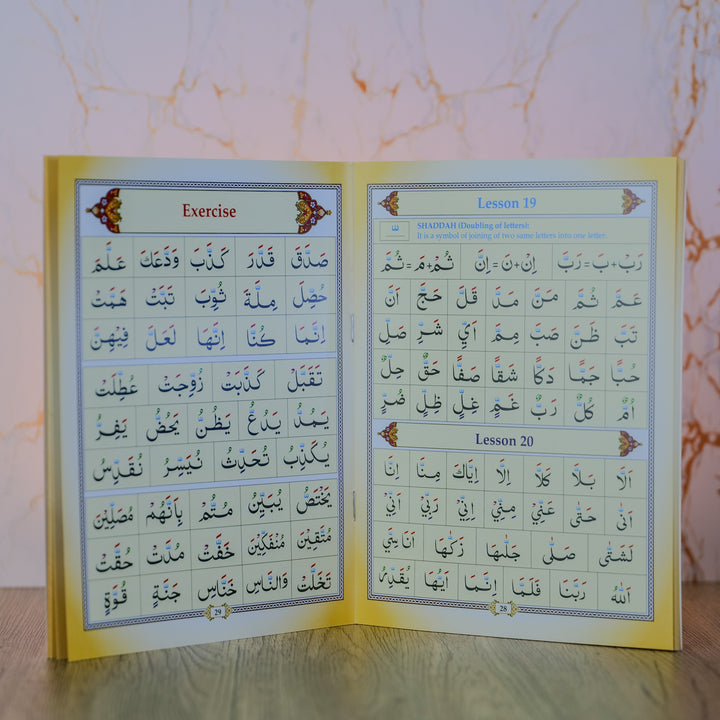 Lesson 19
SHADDAH (Doubling of letters):
It is a symbol of joining of two same letters into one letter.
رَبْ+بَ=رَبَّ اِنْ+نَ=اِنَّ ثُمْ+مَ=ثُمَّ
عَمَّ ثُمَّ مَنَّ مَدَّ قَلَّ حَجَّ اَنَّ
تَبَّ ظَنَّ صَبَّ مِمَّ اَيِّ شَرِّ صَلِّ
حُبًّا جَمًّا دَكًّا شَقًّا صَفًّا حَقٌّ حِلٌّ
اُمٌّ كُلٌّ رَبٌّ غَمٍّ غِلٍّ ظِلٍّ ضُرٍّ
Lesson 20
اَلَّا بَلَّا كَلَّا اِلَّا اِيَّاكَ مِنَّا اِنَّا
اَنّٰى حَتّٰى عَنِّيْ مِنِّيْ اِنِّيْ رَبِّيْ اَنِّيْ
لَشَتّٰى صَلّٰى جَلّٰىهَا زَكّٰىهَا اَنَاسِيَّ
اَللّٰهُ رَبَّنَا فَلَمَّا اِنَّمَا اَيُّهَا
28
Exercise
صَدَّقَ قَدَّرَ كَذَّبَ وَدَّعَكَ عَلَّمَ
حُصِّلَ مِلَّةَ ثُوِّبَ تَبَّتْ هَمَّتْ
اِنَّمَا كُنَّا اِنَّهَا لَعَلَّ فِيْهِنَّ
تَقَبَّلَ كَذَّبَتْ زُوِّجَتْ عُطِّلَتْ
يَمُدُّ يَدُعُّ يَظُنُّ يَحُضُّ يَفِرُّ
يُكَذِّبُ تُحَدِّثُ نُيَسِّرُ نُقَدِّسُ
يَخْتَصُّ يُبَيِّنُ مُتُّمْ بِاَنَّهُمْ مُصَلِّيْنَ
مُتَّقِيْنَ مُنْفَكِّيْنَ خَفَّتْ مُدَّتْ حُقَّتْ
تَخَلَّتْ وَالنَّاسِ خَنَّاسِ جَنَّةٍ قُوَّةٍ
29